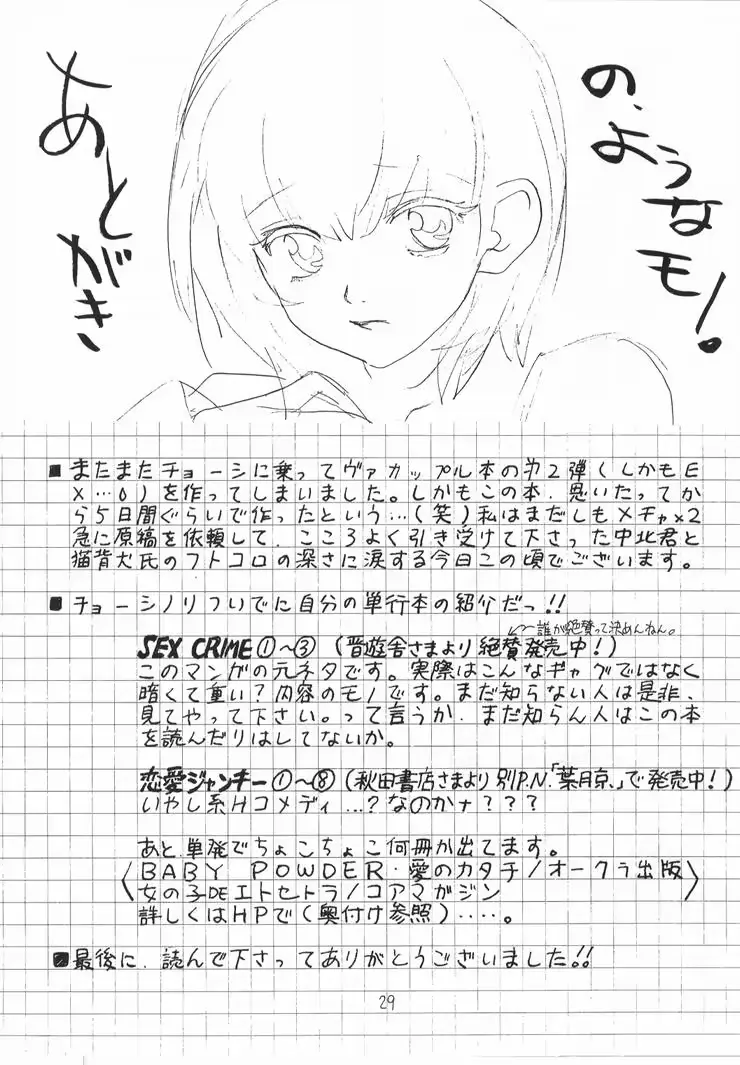 あとがき
の、ような
モノ。
■またまたチョーシに乗ってヴァカップル本の第2弾(しかもE
X…0)を作ってしまいました。しかもこの本、思いたってか
ら5日間ぐらいで作ったという…(笑)私はまだしもメチャx2
急に原稿を依頼して、こころよく引き受けて下さった中北君と
猫背犬氏のフトコロの深さに涙する今日この頃でございます。
■チョーシノリついでに自分の単行本の紹介だっ!!
←誰が絶賛って決めんねん。
SEX CRIME①〜③(晋遊舎さまより絶賛発売中!)
このマンガの元ネタです。実際はこんなギャグではなく
暗くて重い?内容のモノです。まだ知らない人は是非、
見てやって下さい。って言うか、まだ知らん人はこの本
を読んだりはしてないか。
恋愛ジャンキー①〜⑧(秋田書店さまより別P.N.「葉月京、」で発売中!)
いやし系Hコメディ…?なのかナ???
あと、単発でちょこちょこ何冊か出てます。
〈BABY POWDER・愛のカタチ/オークラ出版
女の子DEエトセトラ/コアマガジン〉
詳しくはHPで(奥付け参照)‥‥。
■最後に、読んで下さってありがとうございました!!
29